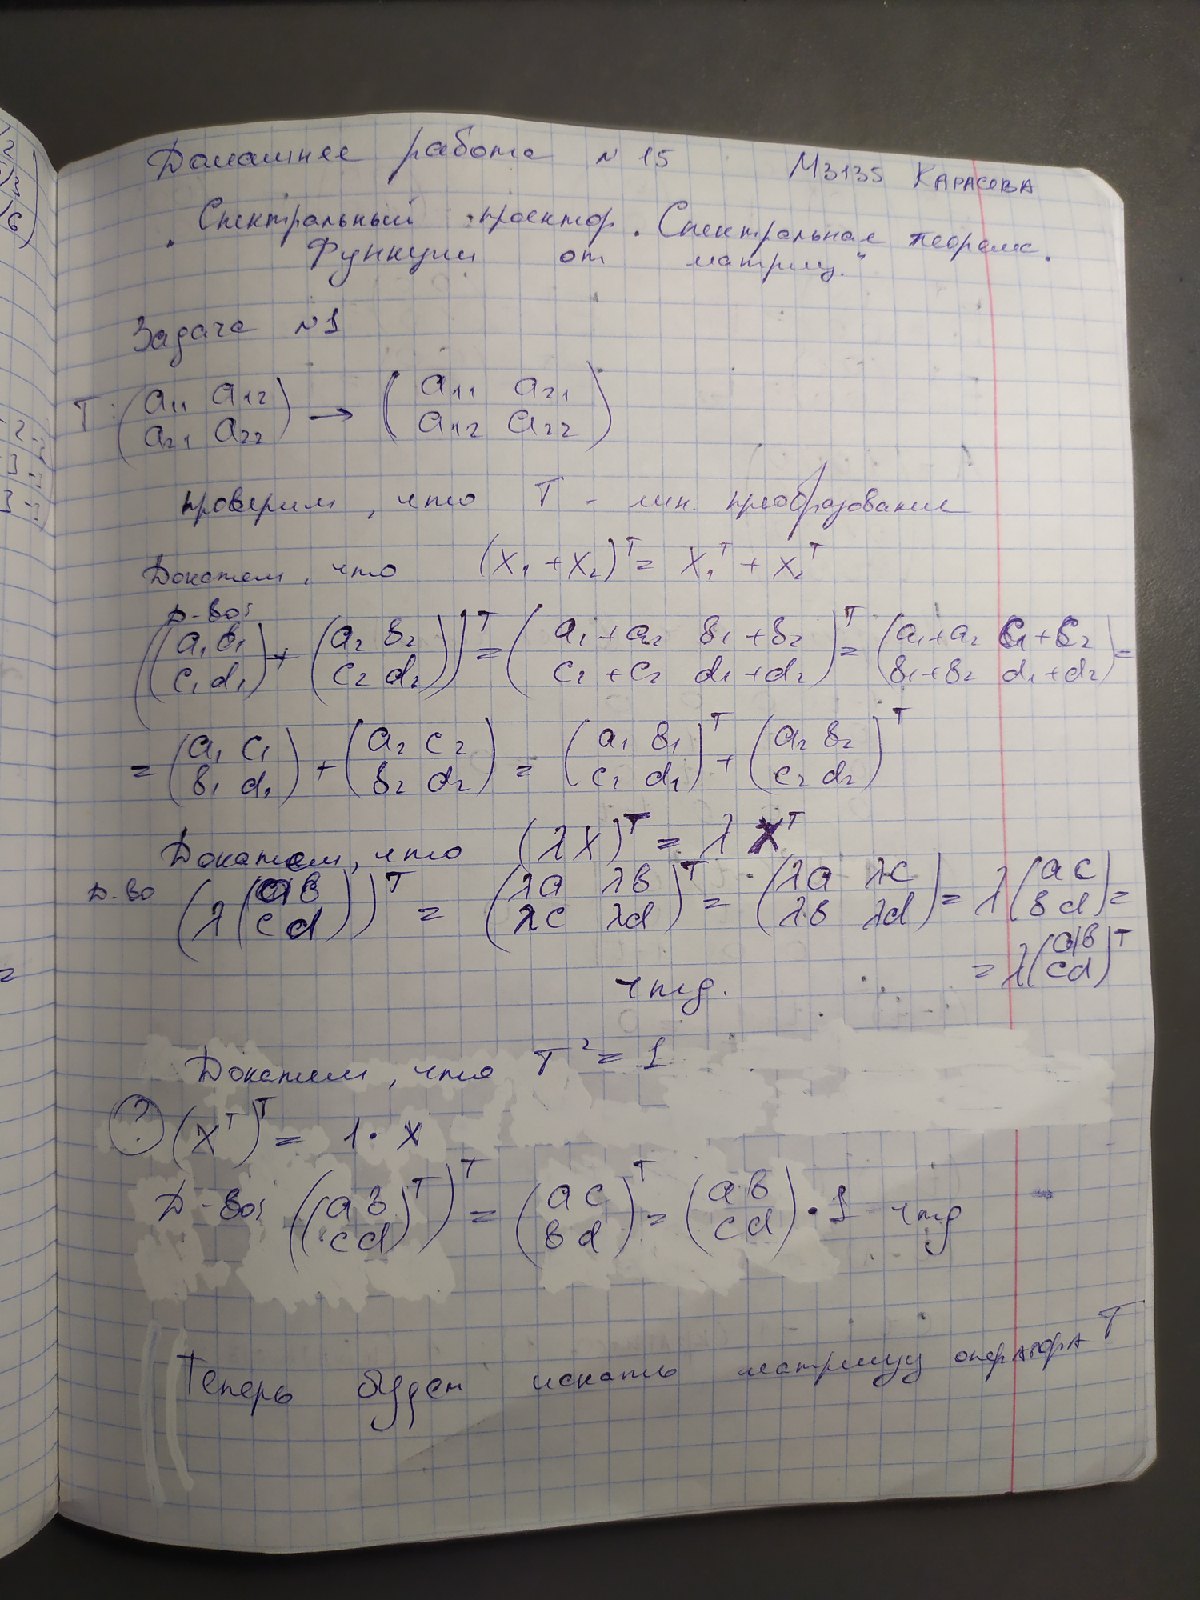 Домашнее работа №15 М3135 КАРАСЕВА
"Спектральный проектор. Спектральная теорема.
Функции от матриц."
Задача №1
T: (a₁₁ a₁₂; a₂₁ a₂₂) → (a₁₁ a₂₁; a₁₂ a₂₂)
проверим, что T - лин. преобразование
Докажем, что (X₁ + X₂)ᵀ = X₁ᵀ + X₂ᵀ
Д-во:
((a₁ b₁; c₁ d₁) + (a₂ b₂; c₂ d₂))ᵀ = (a₁+a₂ b₁+b₂; c₁+c₂ d₁+d₂)ᵀ = (a₁+a₂ c₁+c₂; b₁+b₂ d₁+d₂) =
= (a₁ c₁; b₁ d₁) + (a₂ c₂; b₂ d₂) = (a₁ b₁; c₁ d₁)ᵀ + (a₂ b₂; c₂ d₂)ᵀ
Докажем, что (λX)ᵀ = λXᵀ
Д-во (λ(a b; c d))ᵀ = (λa λb; λc λd)ᵀ = (λa λc; λb λd) = λ(a c; b d) =
= λ(a b; c d)ᵀ
чтд.
Докажем, что T² = 1
? (Xᵀ)ᵀ = 1 · X
Д-во: ((a b; c d)ᵀ)ᵀ = (a c; b d)ᵀ = (a b; c d) · 1 чтд
Теперь будем искать матрицу оператора T